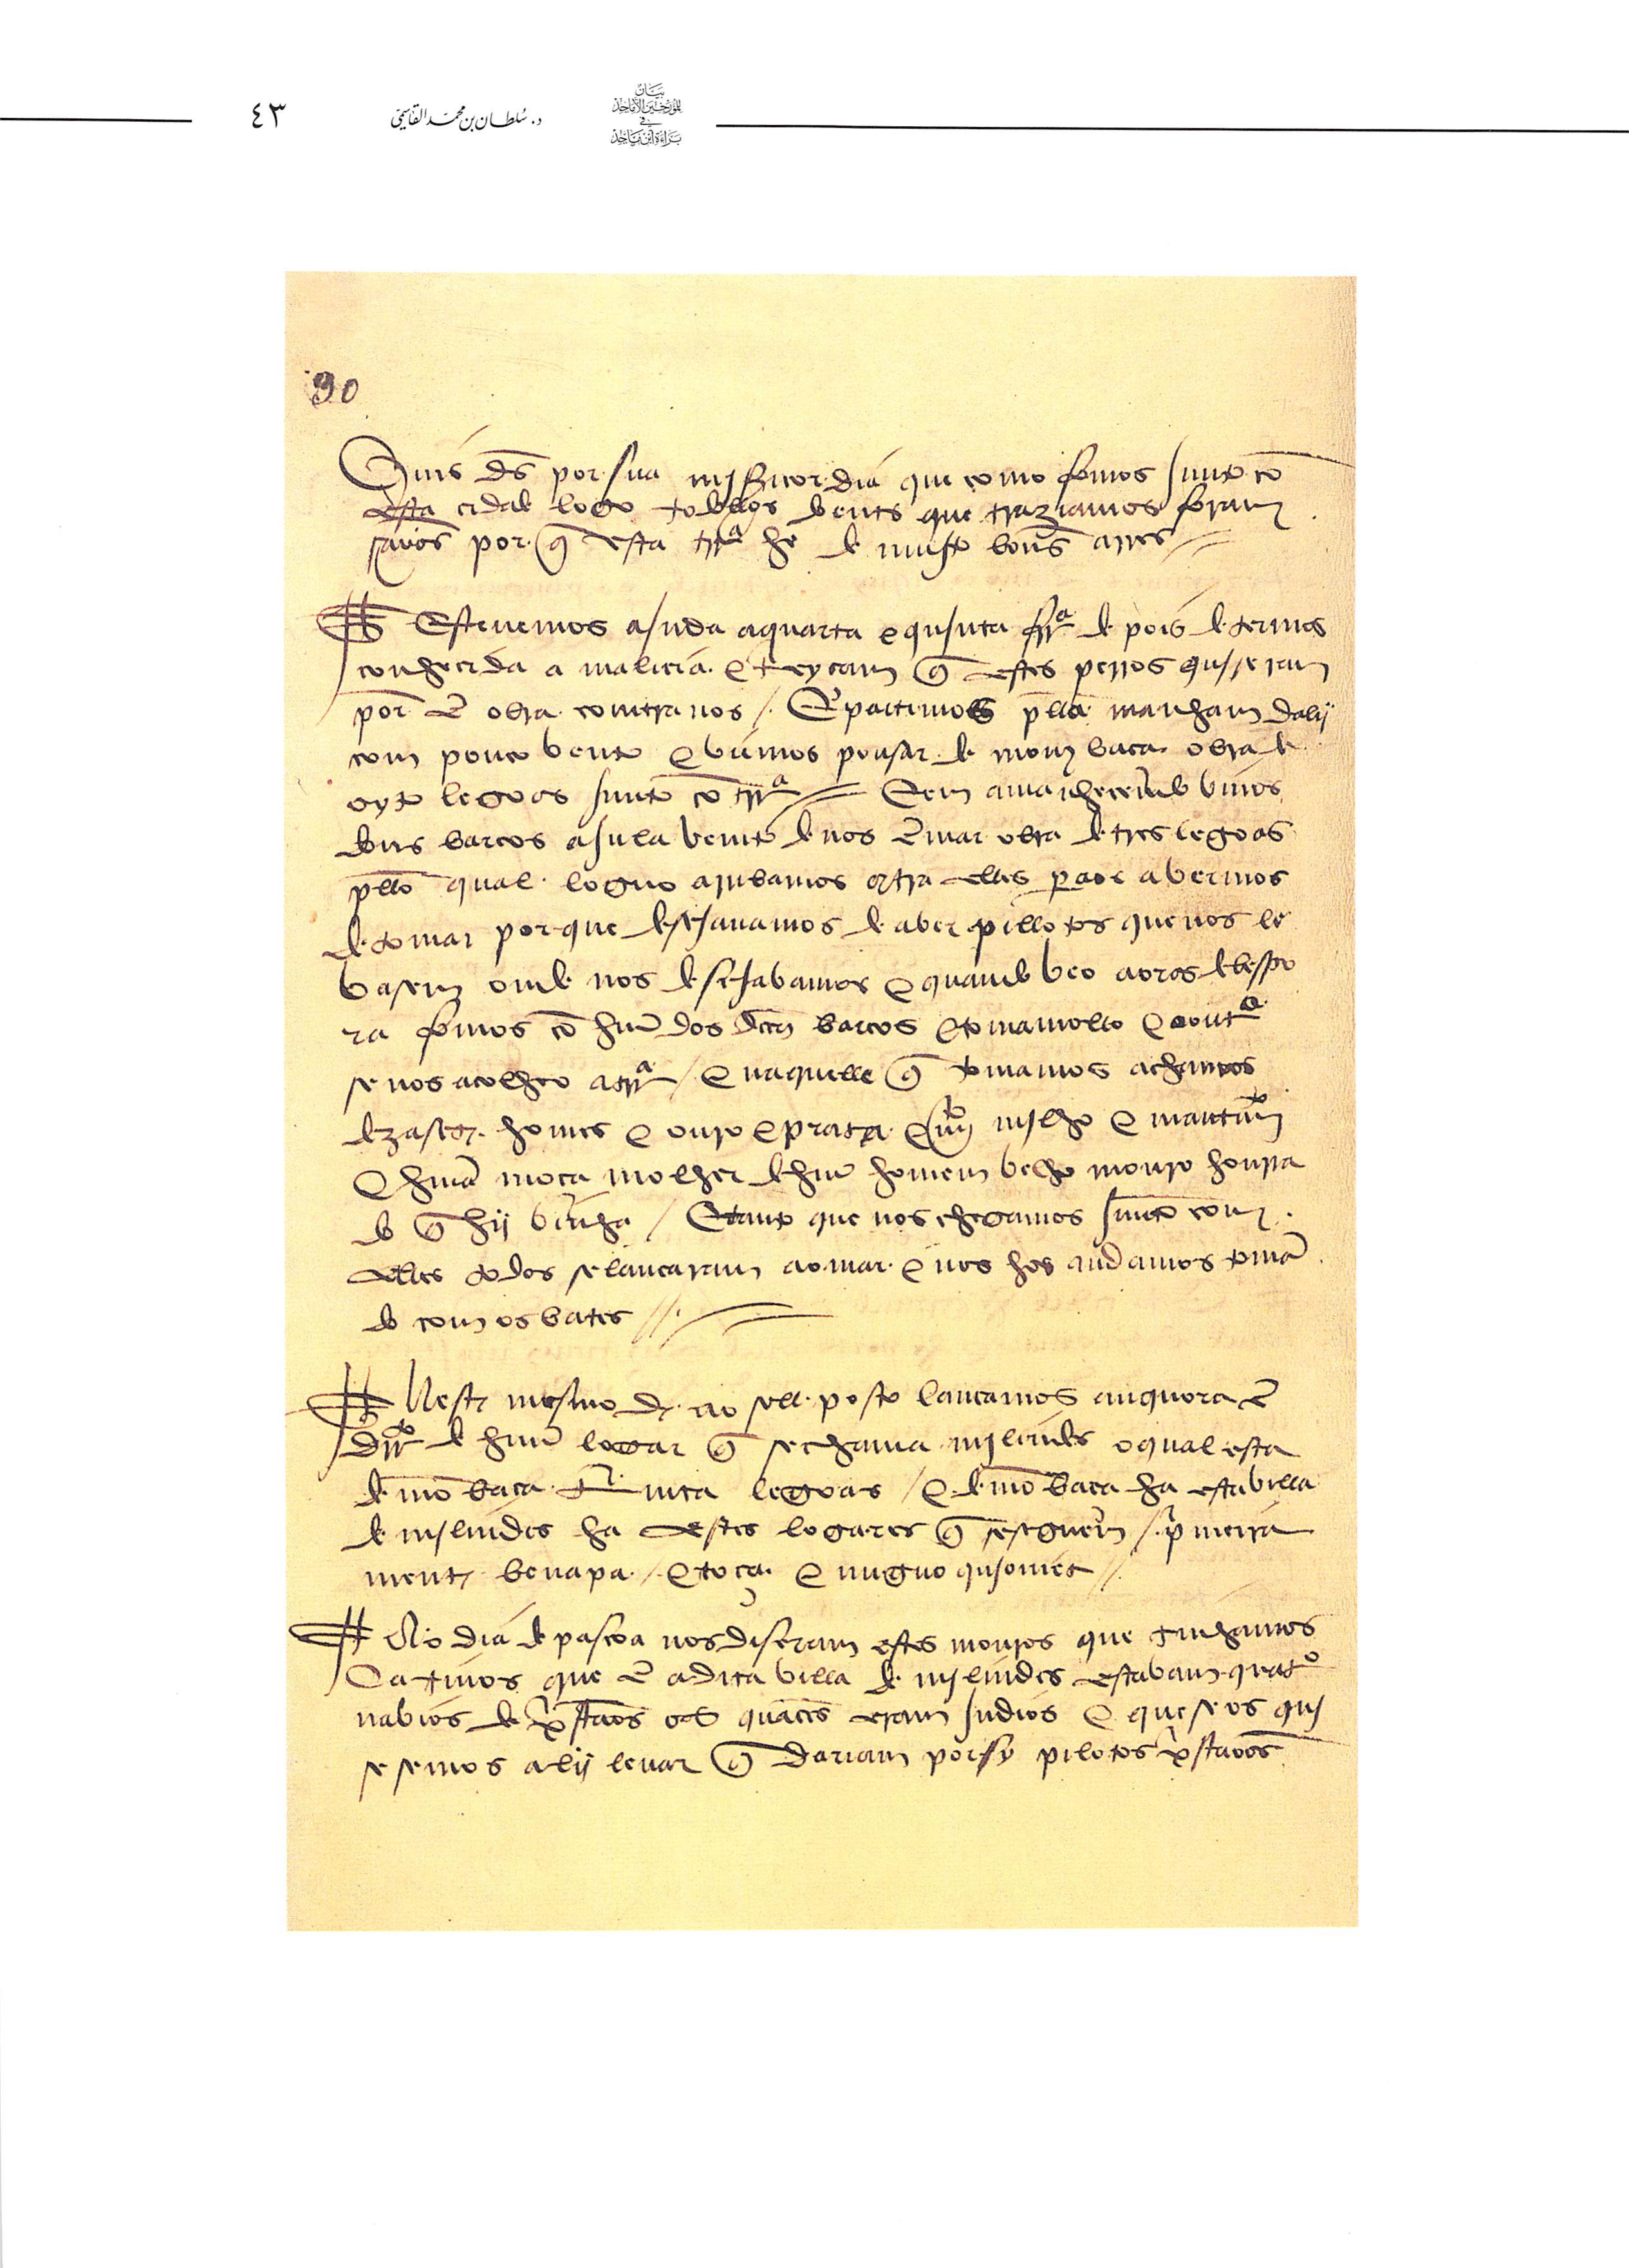 ٤٣
د. سُلطان بن محمّد القاسمي
بَيَان
للمؤرخين الأماجد
في
براءة ابن ماجد
90
Quis ds por sua mjsericordia que como fomos junto cõ
esta cidade logo todollos doentes que traziamos foram
sãaos por q̃ esta trra he de mujto boõs arres
Estevemos ajnda a quarta e qujnta frra depois de termos
conhecida a malicia e treycam q̃ estes perros qujseram
por ẽ obra contra nos / E partimos pella manham dalij
com pouco vento e viemos pousar de mombaca obra de
oyto legoas junto cõ trra E em amanhecendo vimos
dous barcos a julavento de nos ẽ mar obra de tres legoas
pello qual loguo arribamos contra elles para os avermos
de tomar porque desejavamos de aver pillotos que nos le
vasem onde nos desejabamos e quando veo aoras de bespo
ra fomos cõ huũ dos ditos barcos e tomamollo e o outro
se nos acolheo a trra / e naquelle q̃ tomamos achamos
dezasete homes e ouro e prata e muito mjlho e mantimẽto
E huã moca molher de huũ homem velho mouro honrra
do q̃ hij vinha / E tanto que nos chegamos junto com
elles todos se lancaram ao mar e nos hos andamos tomã
do com os bates
Neste mesmo dia ao soll posto lancamos anquora ẽ
dirto de huũ logar q̃ se chama mjlinde o qual esta
de mõbaca trinta legoas / e de mõbaca ha esta villa
de mjlindes ha estes logares q̃ se seguem / primeira
mente benapa / e toça e nuguo qujoniete
No dia de pascoa nos diseram estes mouros que tinhamos
Cativos que ẽ a dita villa de mjlindes estavam quatro
navios de xpstãos os quaees eram Indios e que se os quj
sesemos alij levar q̃ dariam por sy pilotos xpstãos